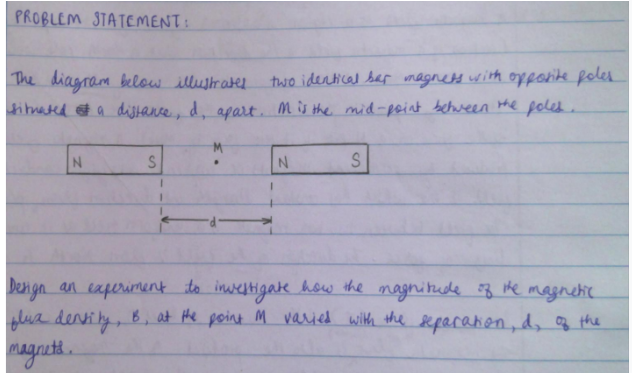 PROBLEM STATEMENT:
The diagram below illustrates two identical bar magnets with opposite poles
situated a distance, d, apart. M is the mid-point between the poles.
M
N S N S
d
Design an experiment to investigate how the magnitude of the magnetic
flux density, B, at the point M varied with the separation, d, of the
magnets.